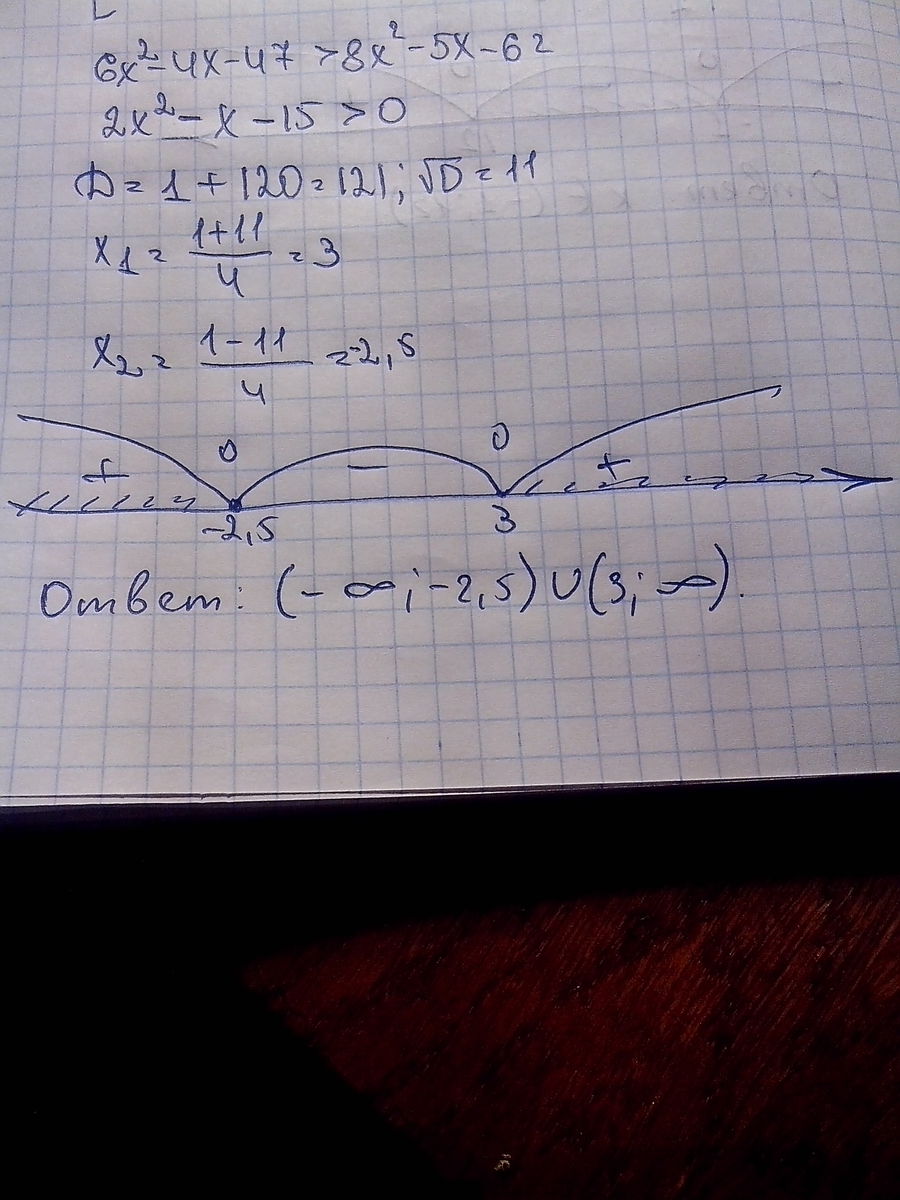 6x²-4x-47 > 8x²-5x-62
2x² - x - 15 > 0
D = 1 + 120 = 121; √D = 11
x₁ = (1+11)/4 = 3
x₂ = (1-11)/4 = -2,5
0 0
+ - +
-2,5 3
Ответ: (-∞; -2,5) ∪ (3; ∞).